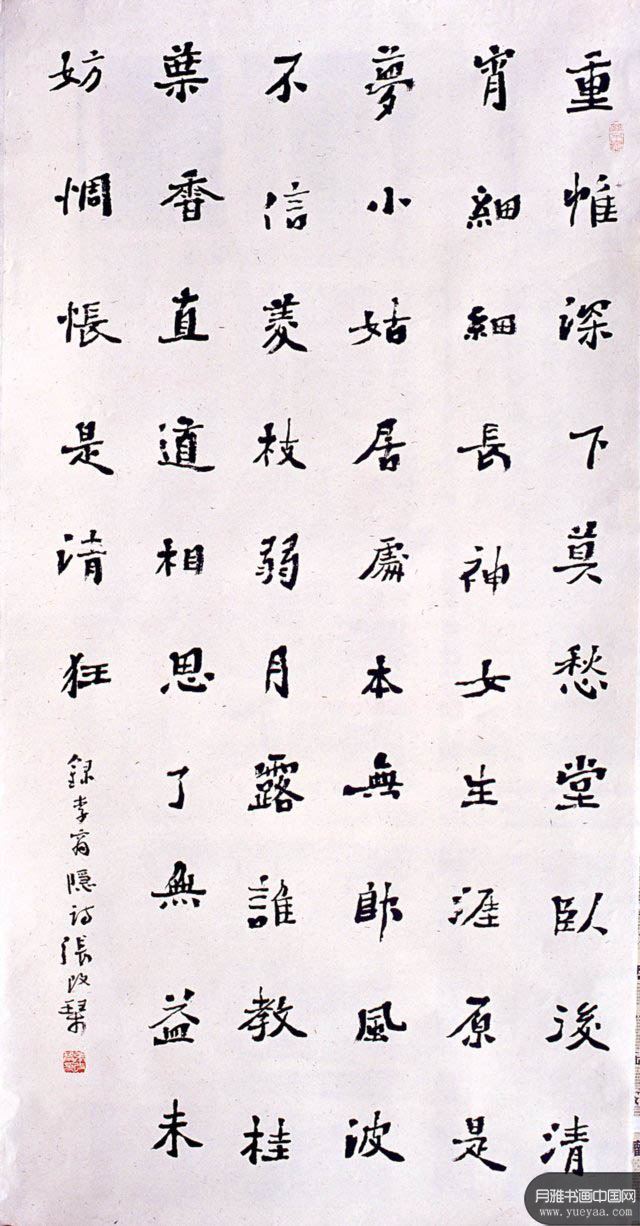 重帷深下莫愁堂臥後清
宵細細長神女生涯原是
夢小姑居處本無郎風波
不信菱枝弱月露誰教桂
葉香直道相思了無益未
妨惆悵是清狂
錄李商隱詩 張改琴
月雅书画中国网
www.yueyaa.com